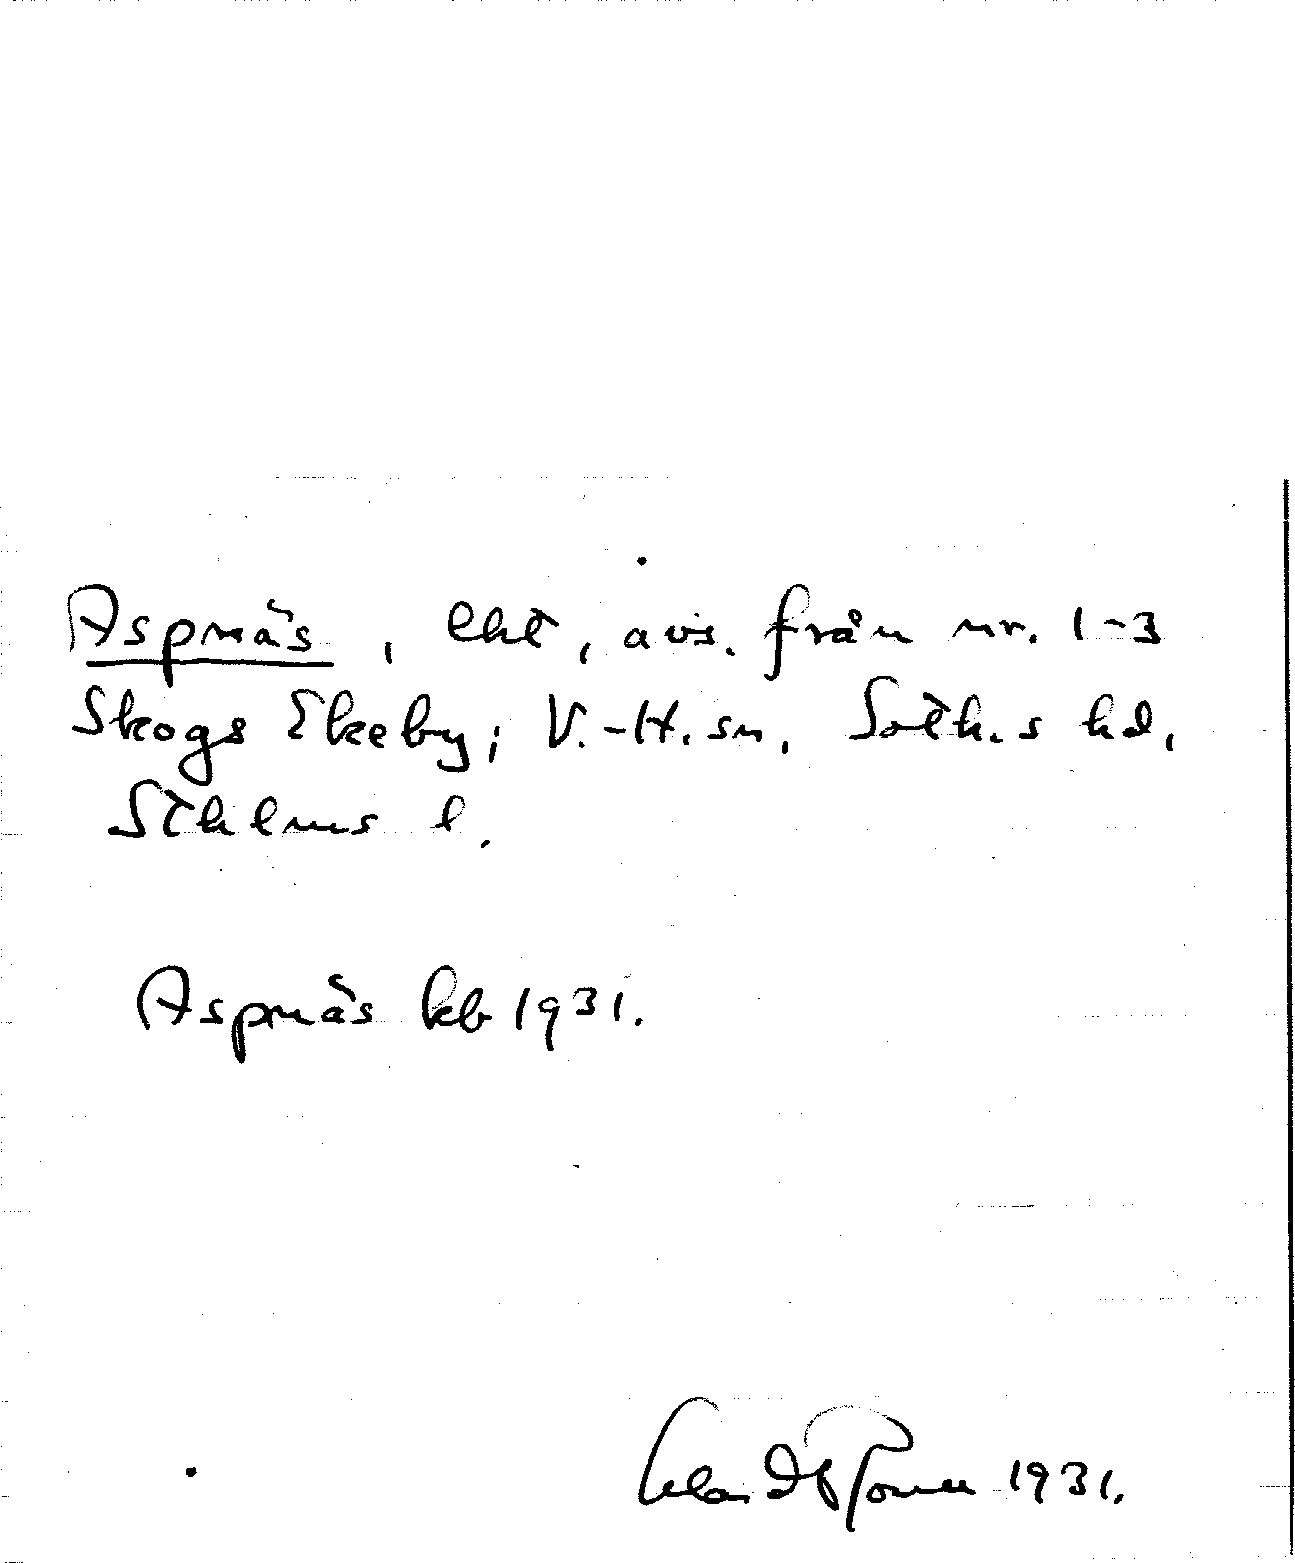 Aspnäs, lht, avs. från nr. 1-3
Skogs Ekeby; V.-H. sn, Soth.s hd,
Sthlms l.
Aspnäs kb 1931.
1931.